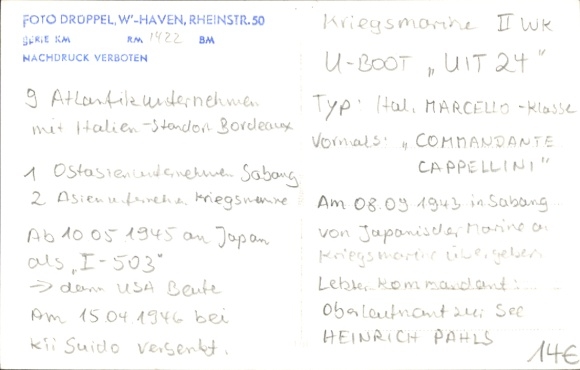 FOTO DRÜPPEL, W'-HAVEN, RHEINSTR. 50
SERIE KM RM 1422 BM
NACHDRUCK VERBOTEN
9 Atlantikunternehmen
mit Italien-Standort Bordeaux
1 Ostasienunternehmen Sabang
2 Asienunterneh. Kriegsmarine
Ab 10 05 1945 an Japan
als „I-503"
→ dann USA Beute
Am 15.04.1946 bei
Kii Suido versenkt.
Kriegsmarine II WK
U-BOOT „UIT 24"
Typ: Ital. MARCELLO-Klasse
Vormals: „COMMANDANTE
CAPPELLINI"
Am 08.09 1943 in Sabang
von Japanischer Marine an
Kriegsmarine übergeben
Letzter Kommandant:
Oberleutnant zur See
HEINRICH PAHLS
14€